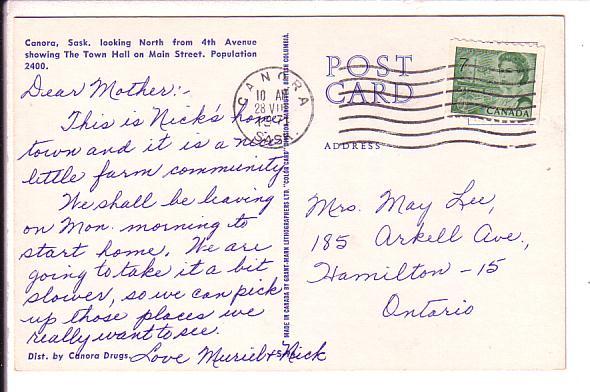 Canora, Sask. looking North from 4th Avenue
showing The Town Hall on Main Street. Population
2400.
Dear Mother:-
This is Nick's home
town and it is a nice
little farm community
We shall be leaving
on Mon. morning to
start home. We are
going to take it a bit
slower, so we can pick
up those places we
really want to see.
Dist. by Canora Drugs
Love Muriel & Nick
MADE IN CANADA BY GRANT-MANN LITHOGRAPHERS LTD. "COLOR CARD" DIVISION, VANCOUVER, BRITISH COLUMBIA.
POST
CARD
ADDRESS
CANORA
10 AM
28 VII
SASK.
7
CANADA
Mrs. May Lee,
185 Arkell Ave.,
Hamilton - 15
Ontario